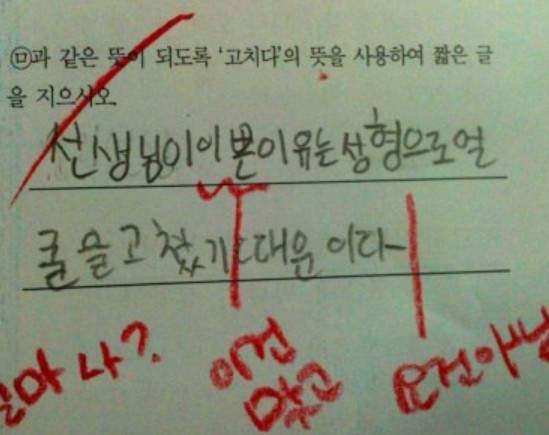 ㉤과 같은 뜻이 되도록 '고치다'의 뜻을 사용하여 짧은 글
을 지으시오
선생님이 이쁜 이유는 성형으로 얼
굴을 고쳤기 때문이다
설마 나?
이건
맞고
요건 아님